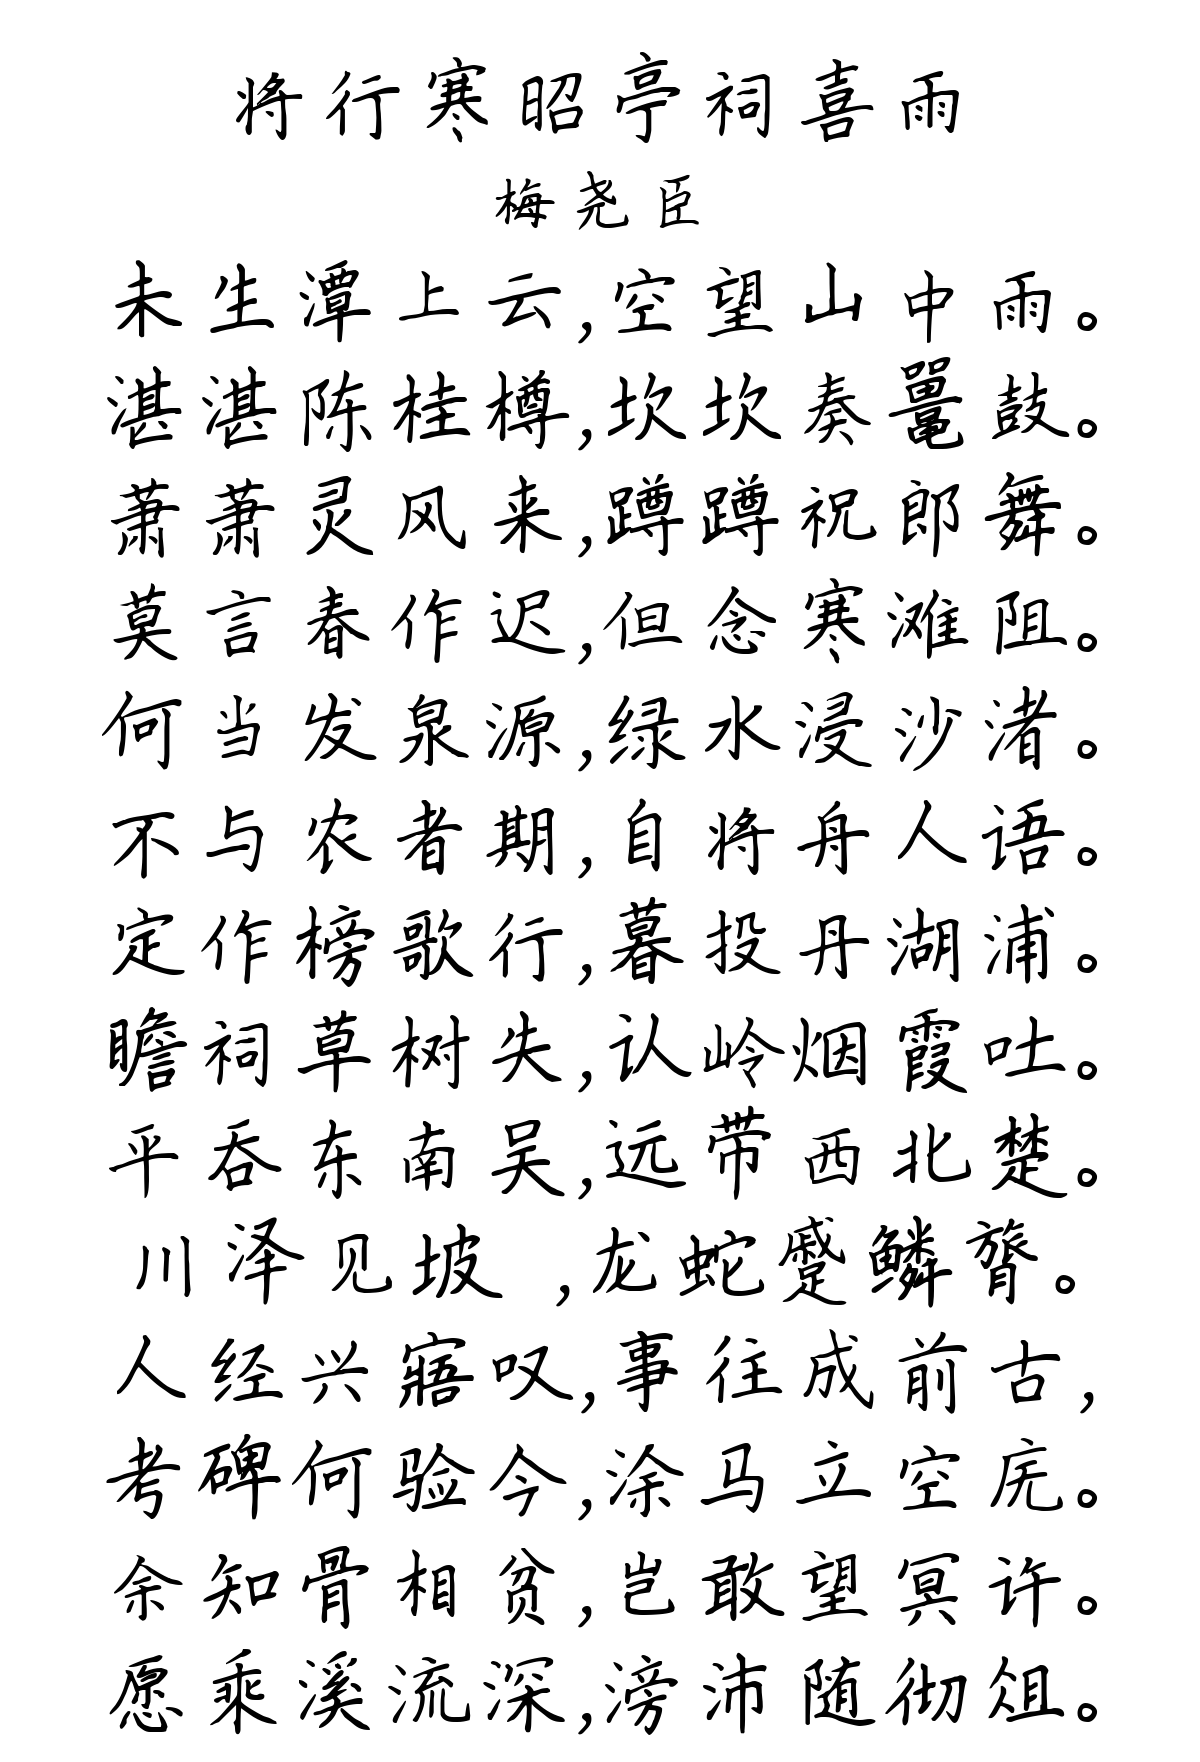 将行寒昭亭祠喜雨
梅尧臣
未生潭上云,空望山中雨。
湛湛陈桂樽,坎坎奏鼍鼓。
萧萧灵风来,蹲蹲祝郎舞。
莫言春作迟,但念寒滩阻。
何当发泉源,绿水浸沙渚。
不与农者期,自将舟人语。
定作榜歌行,暮投丹湖浦。
瞻祠草树失,认岭烟霞吐。
平吞东南吴,远带西北楚。
川泽见坡 ,龙蛇蹙鳞膂。
人经兴寤叹,事往成前古,
考碑何验今,涂马立空庑。
余知骨相贫,岂敢望冥许。
愿乘溪流深,滂沛随彻俎。